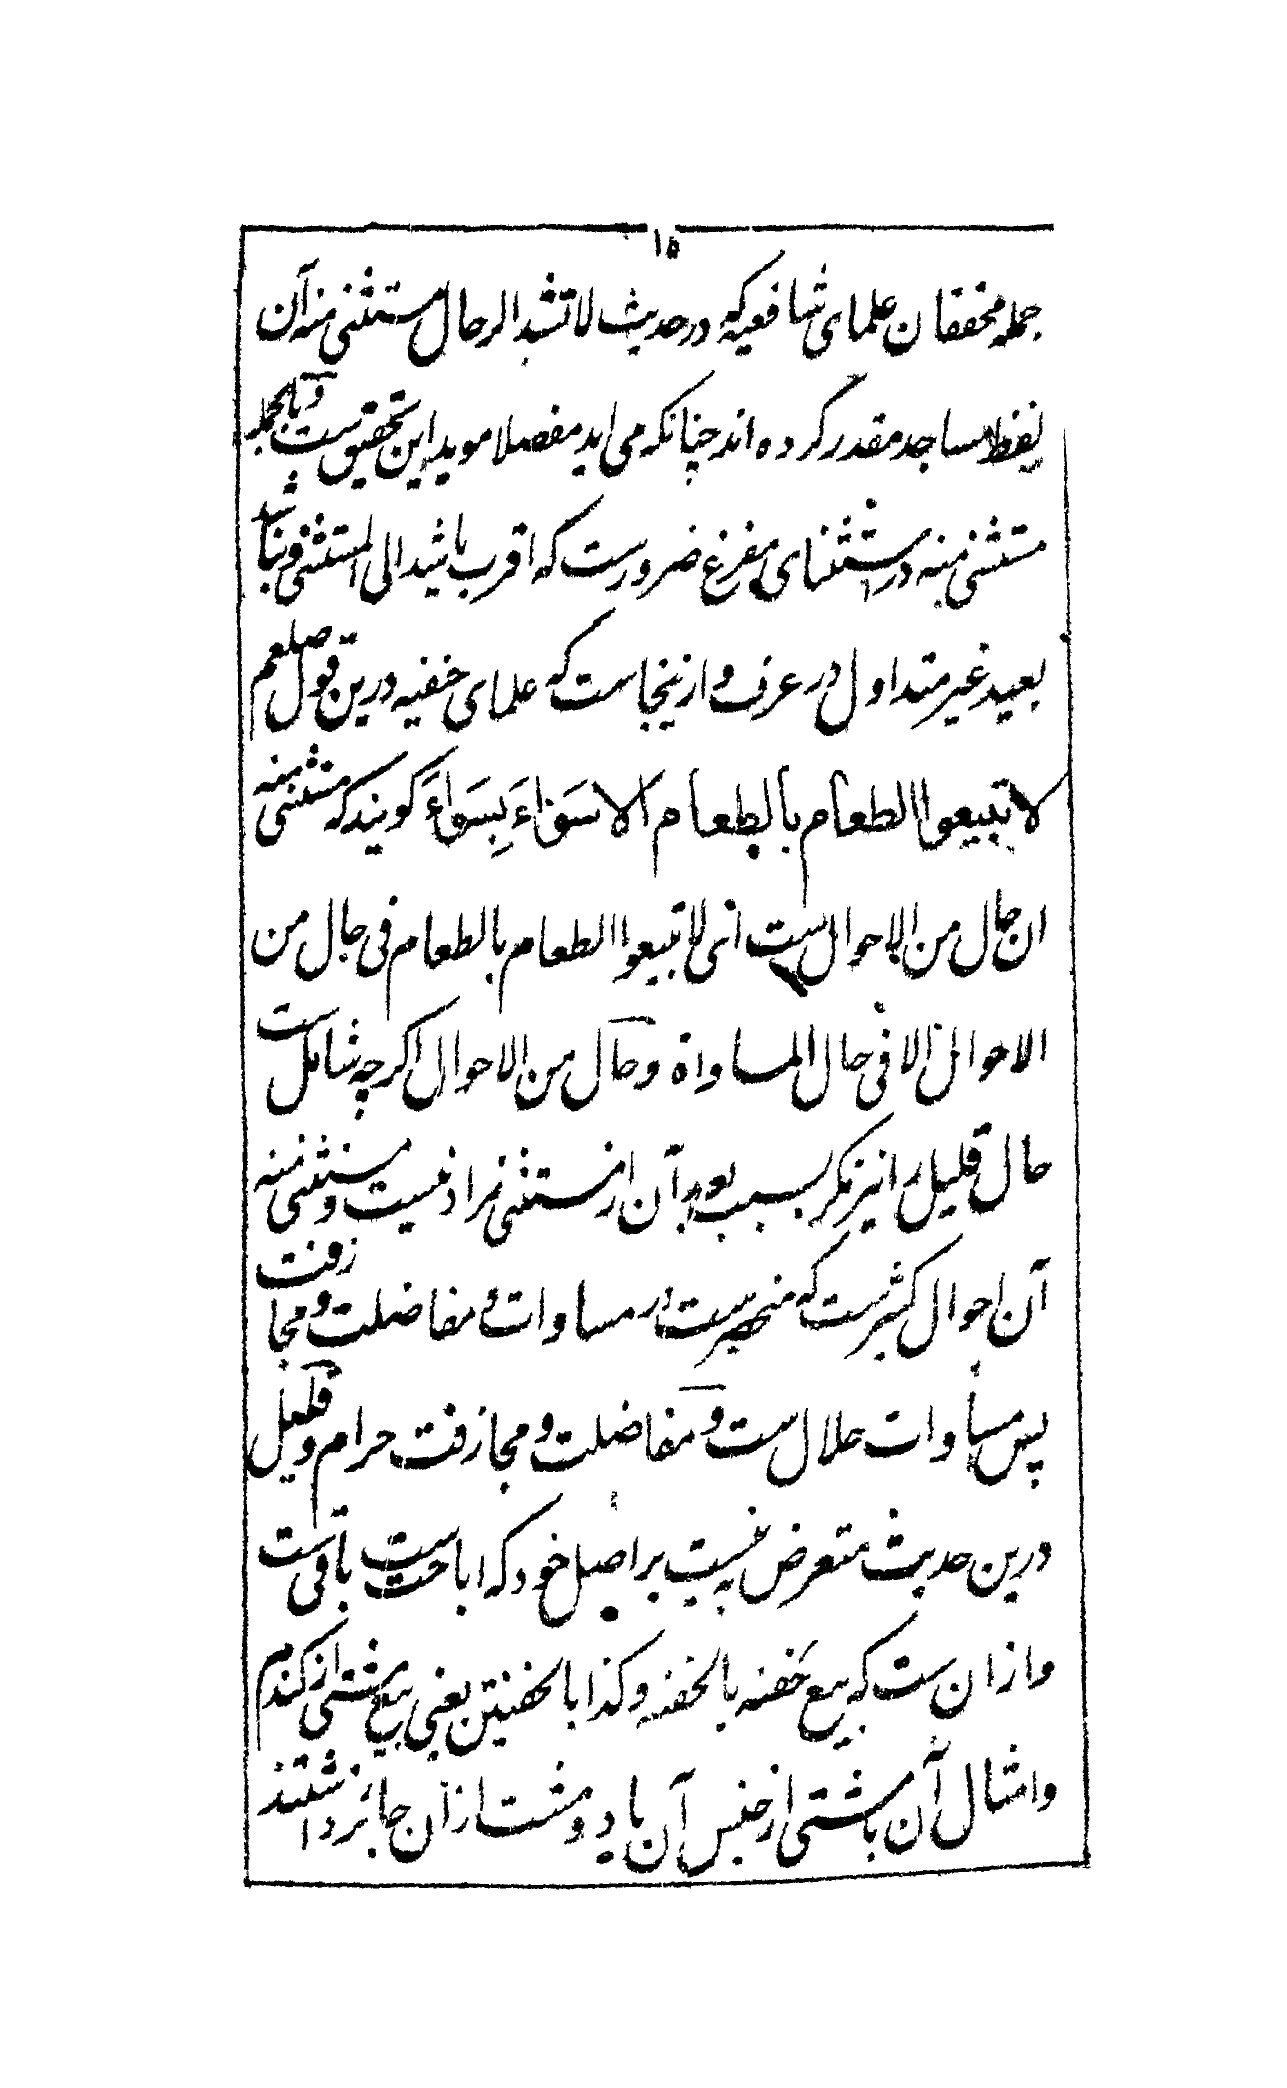 ۱۵
جمله محققان علمای شافعیه که در حدیث لا تشد الرحال مستثنی منه آن
لفظ مساجد مقدر کرده اند چنانکه می اید مفصلا موید این تحقیق ست و بالجمله
مستثنی منه در استثنای مفرغ ضرورست که اقرب باشد الی المستثنی و نباشد
بعید غیر متداول در عرف و ازینجاست که علمای حنفیه درین قول صلعم
لا تبیعوا الطعام بالطعام الا سَوَاءً بِسَوَاءً کویند که مستثنی منه
ان حال من الاحوال ست ای لا تبیعوا الطعام بالطعام فی حال من
الاحوال الا فی حال المساواة و حال من الاحوال اکرچه شامل ست
حال قلیل را نیز مکر بسبب بودن آن از مستثنی مراد نیست و مستثنی منه
آن احوال کثیرست که منحصرست در مساوات و مفاضلت و مجازفت
پس مساوات حلال ست و مفاضلت و مجازفت حرام و قلیل
درین حدیث متعرض به نیست بر اصل خود که اباحت ست باقی ست
و ازان ست که بیع حفنه بالحفنه و کذا بالحفنتین یعنی بیع مشتی از کندم
و امثال آن با مشتی از جنس آن یا دو مشت ازان جائز داشتند